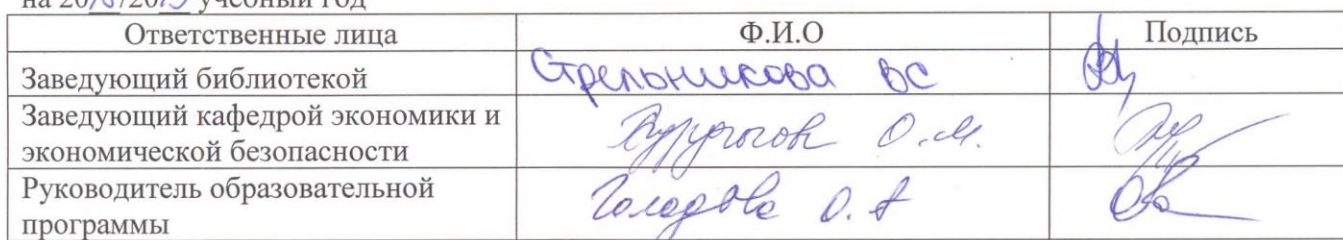 на 2018/2019 учебный год
Ответственные лица Ф.И.О Подпись
Заведующий библиотекой Стрельникова ВС
Заведующий кафедрой экономики и
экономической безопасности О.М.
Руководитель образовательной
программы О.А